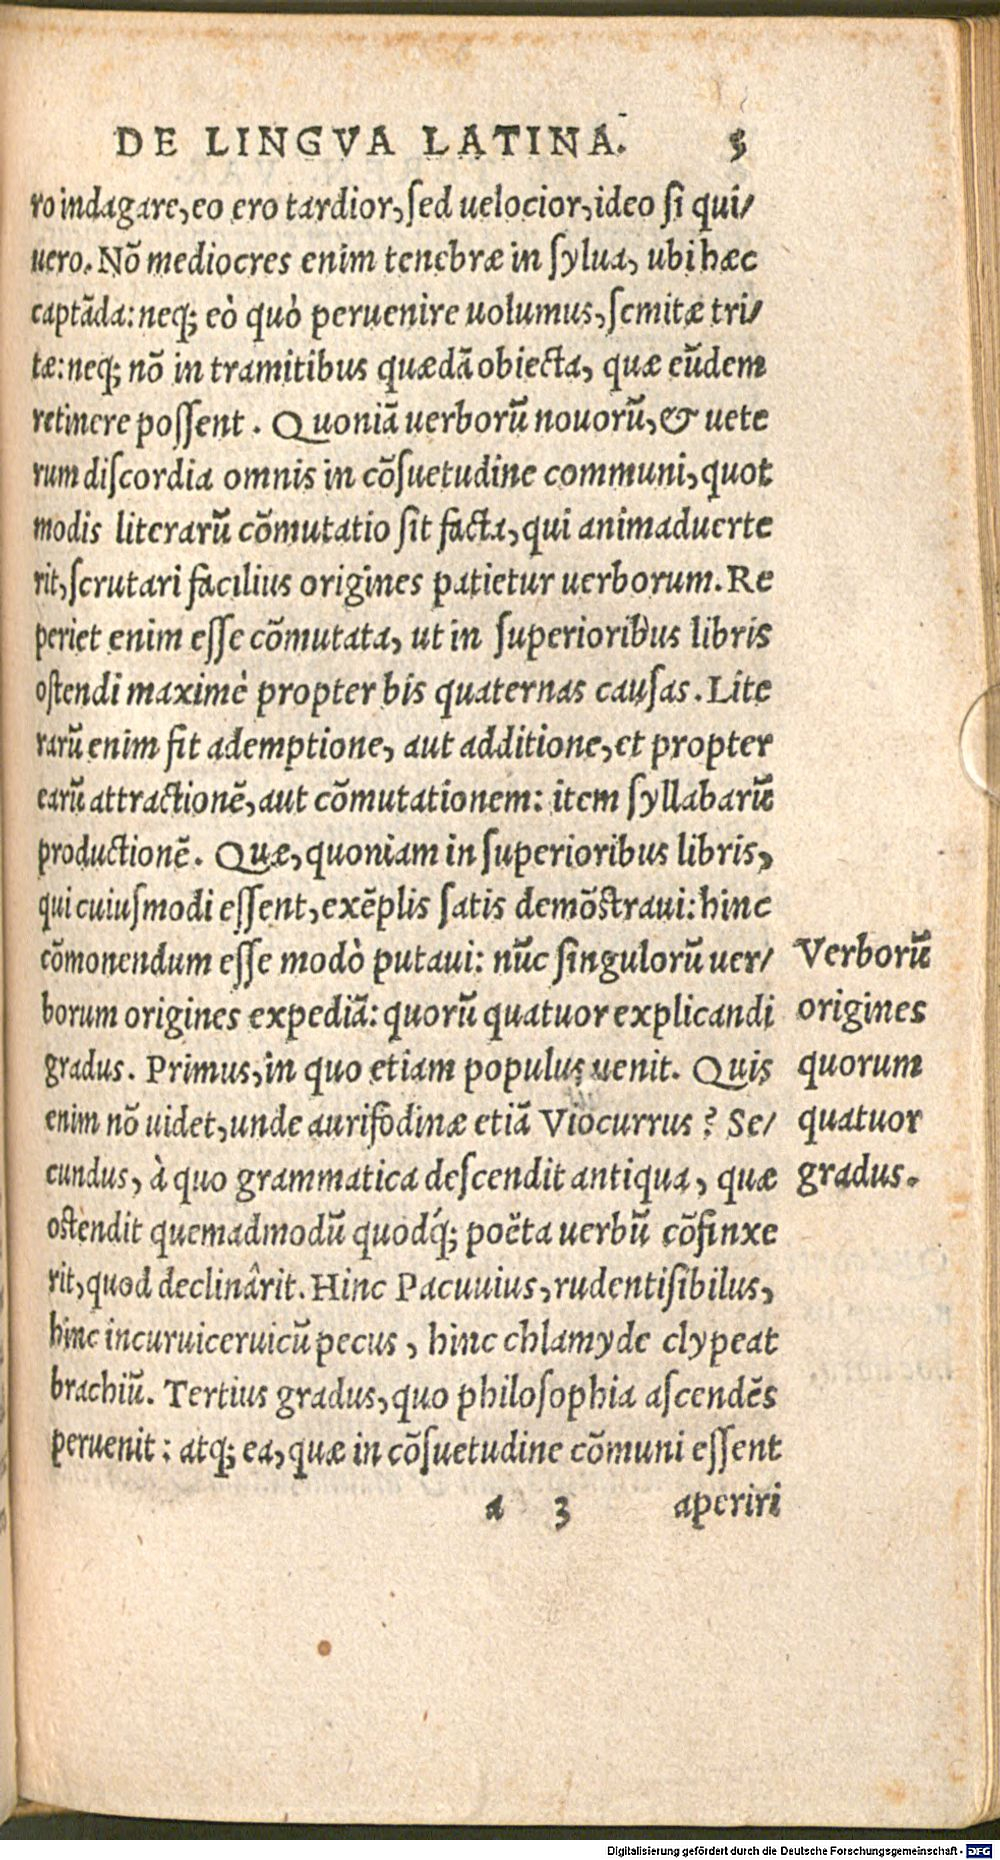 DE LINGVA LATINA. 5
ro indagare, eo ero tardior, sed uelocior, ideo si qui/
uero. Nõ mediocres enim tenebræ in sylua, ubi hæc
captãda: neq; eò quò peruenire uolumus, semitæ tri/
tæ: neq; nõ in tramitibus quædã obiecta, quæ eũdem
retinere possent. Quoniã uerborũ nouorũ, & uete
rum discordia omnis in cõsuetudine communi, quot
modis literarũ cõmutatio sit facta, qui animaduerte
rit, scrutari facilius origines patietur uerborum. Re
periet enim esse cõmutata, ut in superioribus libris
ostendi maximè propter bis quaternas causas. Lite
rarũ enim fit ademptione, aut additione, et propter
earũ attractionẽ, aut cõmutationem: item syllabarũ
productionẽ. Quæ, quoniam in superioribus libris,
qui cuiusmodi essent, exẽplis satis demõstraui: hinc
cõmonendum esse modò putaui: nũc singulorũ uer/
borum origines expediã: quorũ quatuor explicandi
gradus. Primus, in quo etiam populus uenit. Quis
enim nõ uidet, unde aurifodinæ etiã Viocurrus? Se/
cundus, à quo grammatica descendit antiqua, quæ
ostendit quemadmodũ quodq́; poëta uerbũ cõfinxe
rit, quod declinârit. Hinc Pacuuius, rudentisibilus,
hinc incuruiceruicũ pecus, hinc chlamyde clypeat
brachiũ. Tertius gradus, quo philosophia ascendẽs
peruenit: atq; ea, quæ in cõsuetudine cõmuni essent
a 3 aperiri
Verborũ
origines
quorum
quatuor
gradus.
Digitalisierung gefördert durch die Deutsche Forschungsgemeinschaft - DFG